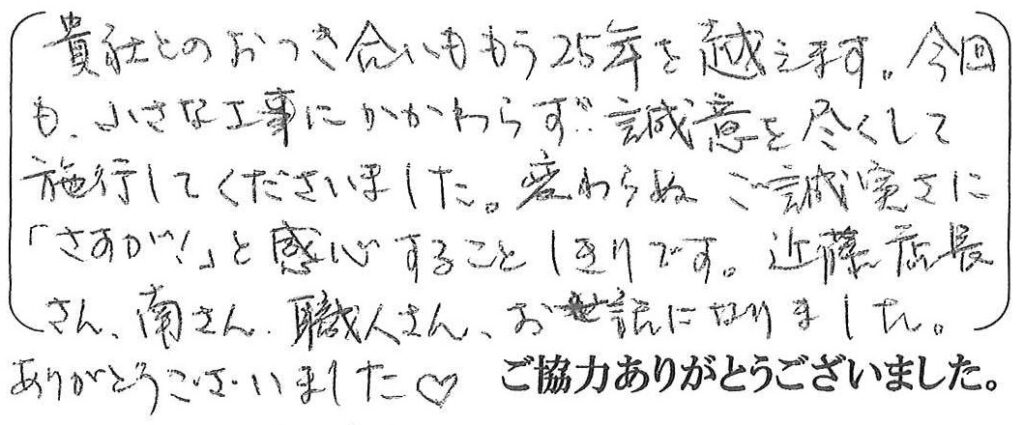 貴社とのおつき合いももう25年を越えます。今回
も、小さな工事にかかわらず、誠意を尽くして
施行してくださいました。変わらぬ ご誠実さに
「さすが!」と感心することしきりです。近藤店長
さん、南さん、職人さん、お世話になりました。
ありがとうございました♡ ご協力ありがとうございました。